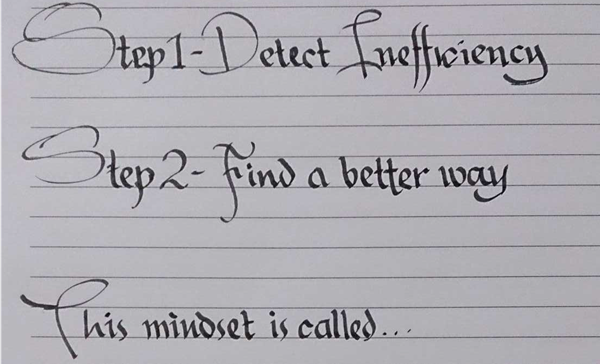 Step 1- Detect Inefficiency
Step 2- Find a better way
This mindset is called...